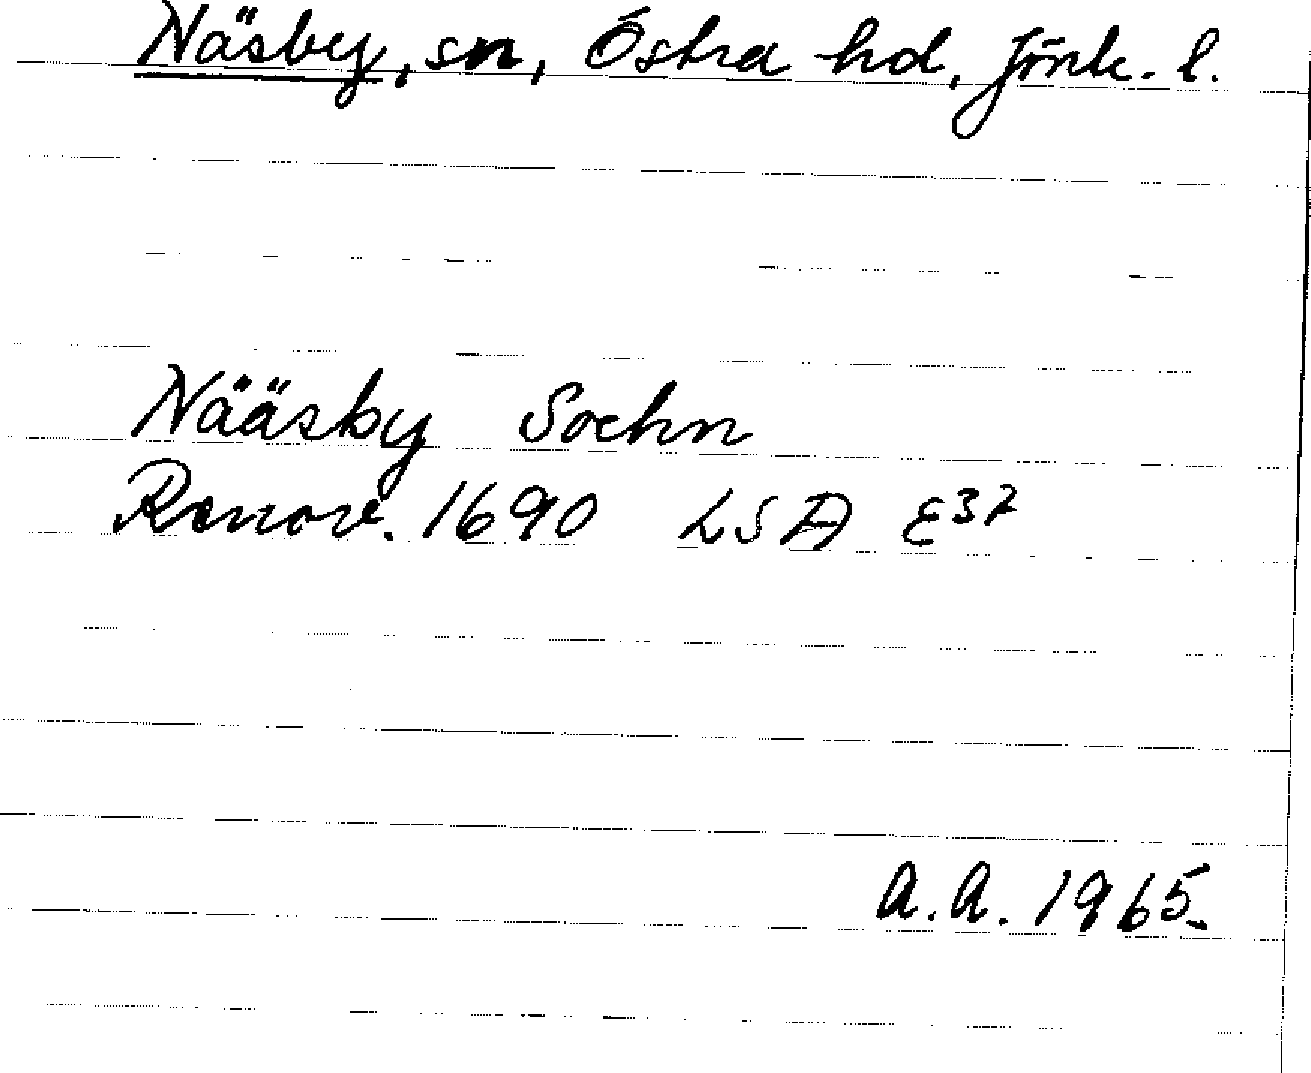 Näsby, sn, Östra hd, Jönk. l.
Nääsby Sochn
Renov. 1690 LSA E37
A.A. 1965.